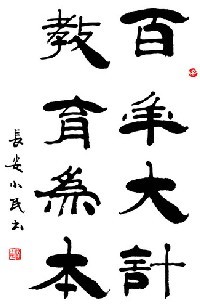 百年大计
教育為本
長安小民书